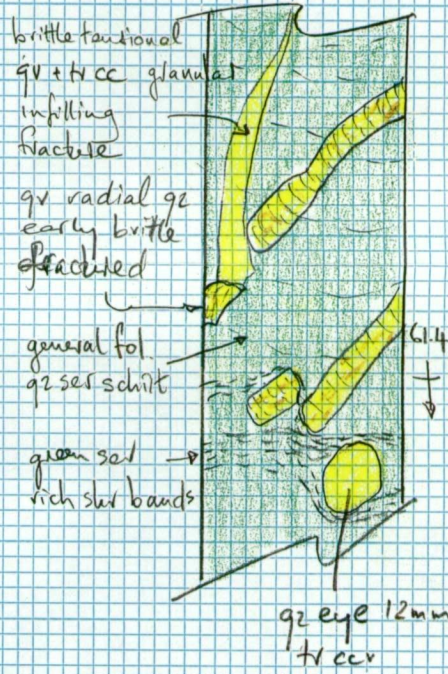 brittle tensional
qv + tr cc granular
infilling
fracture
qv radial qz
early brittle
fractured
general fol.
qz ser schist
61.4
green ser
rich shr bands
qz eye 12mm
tr